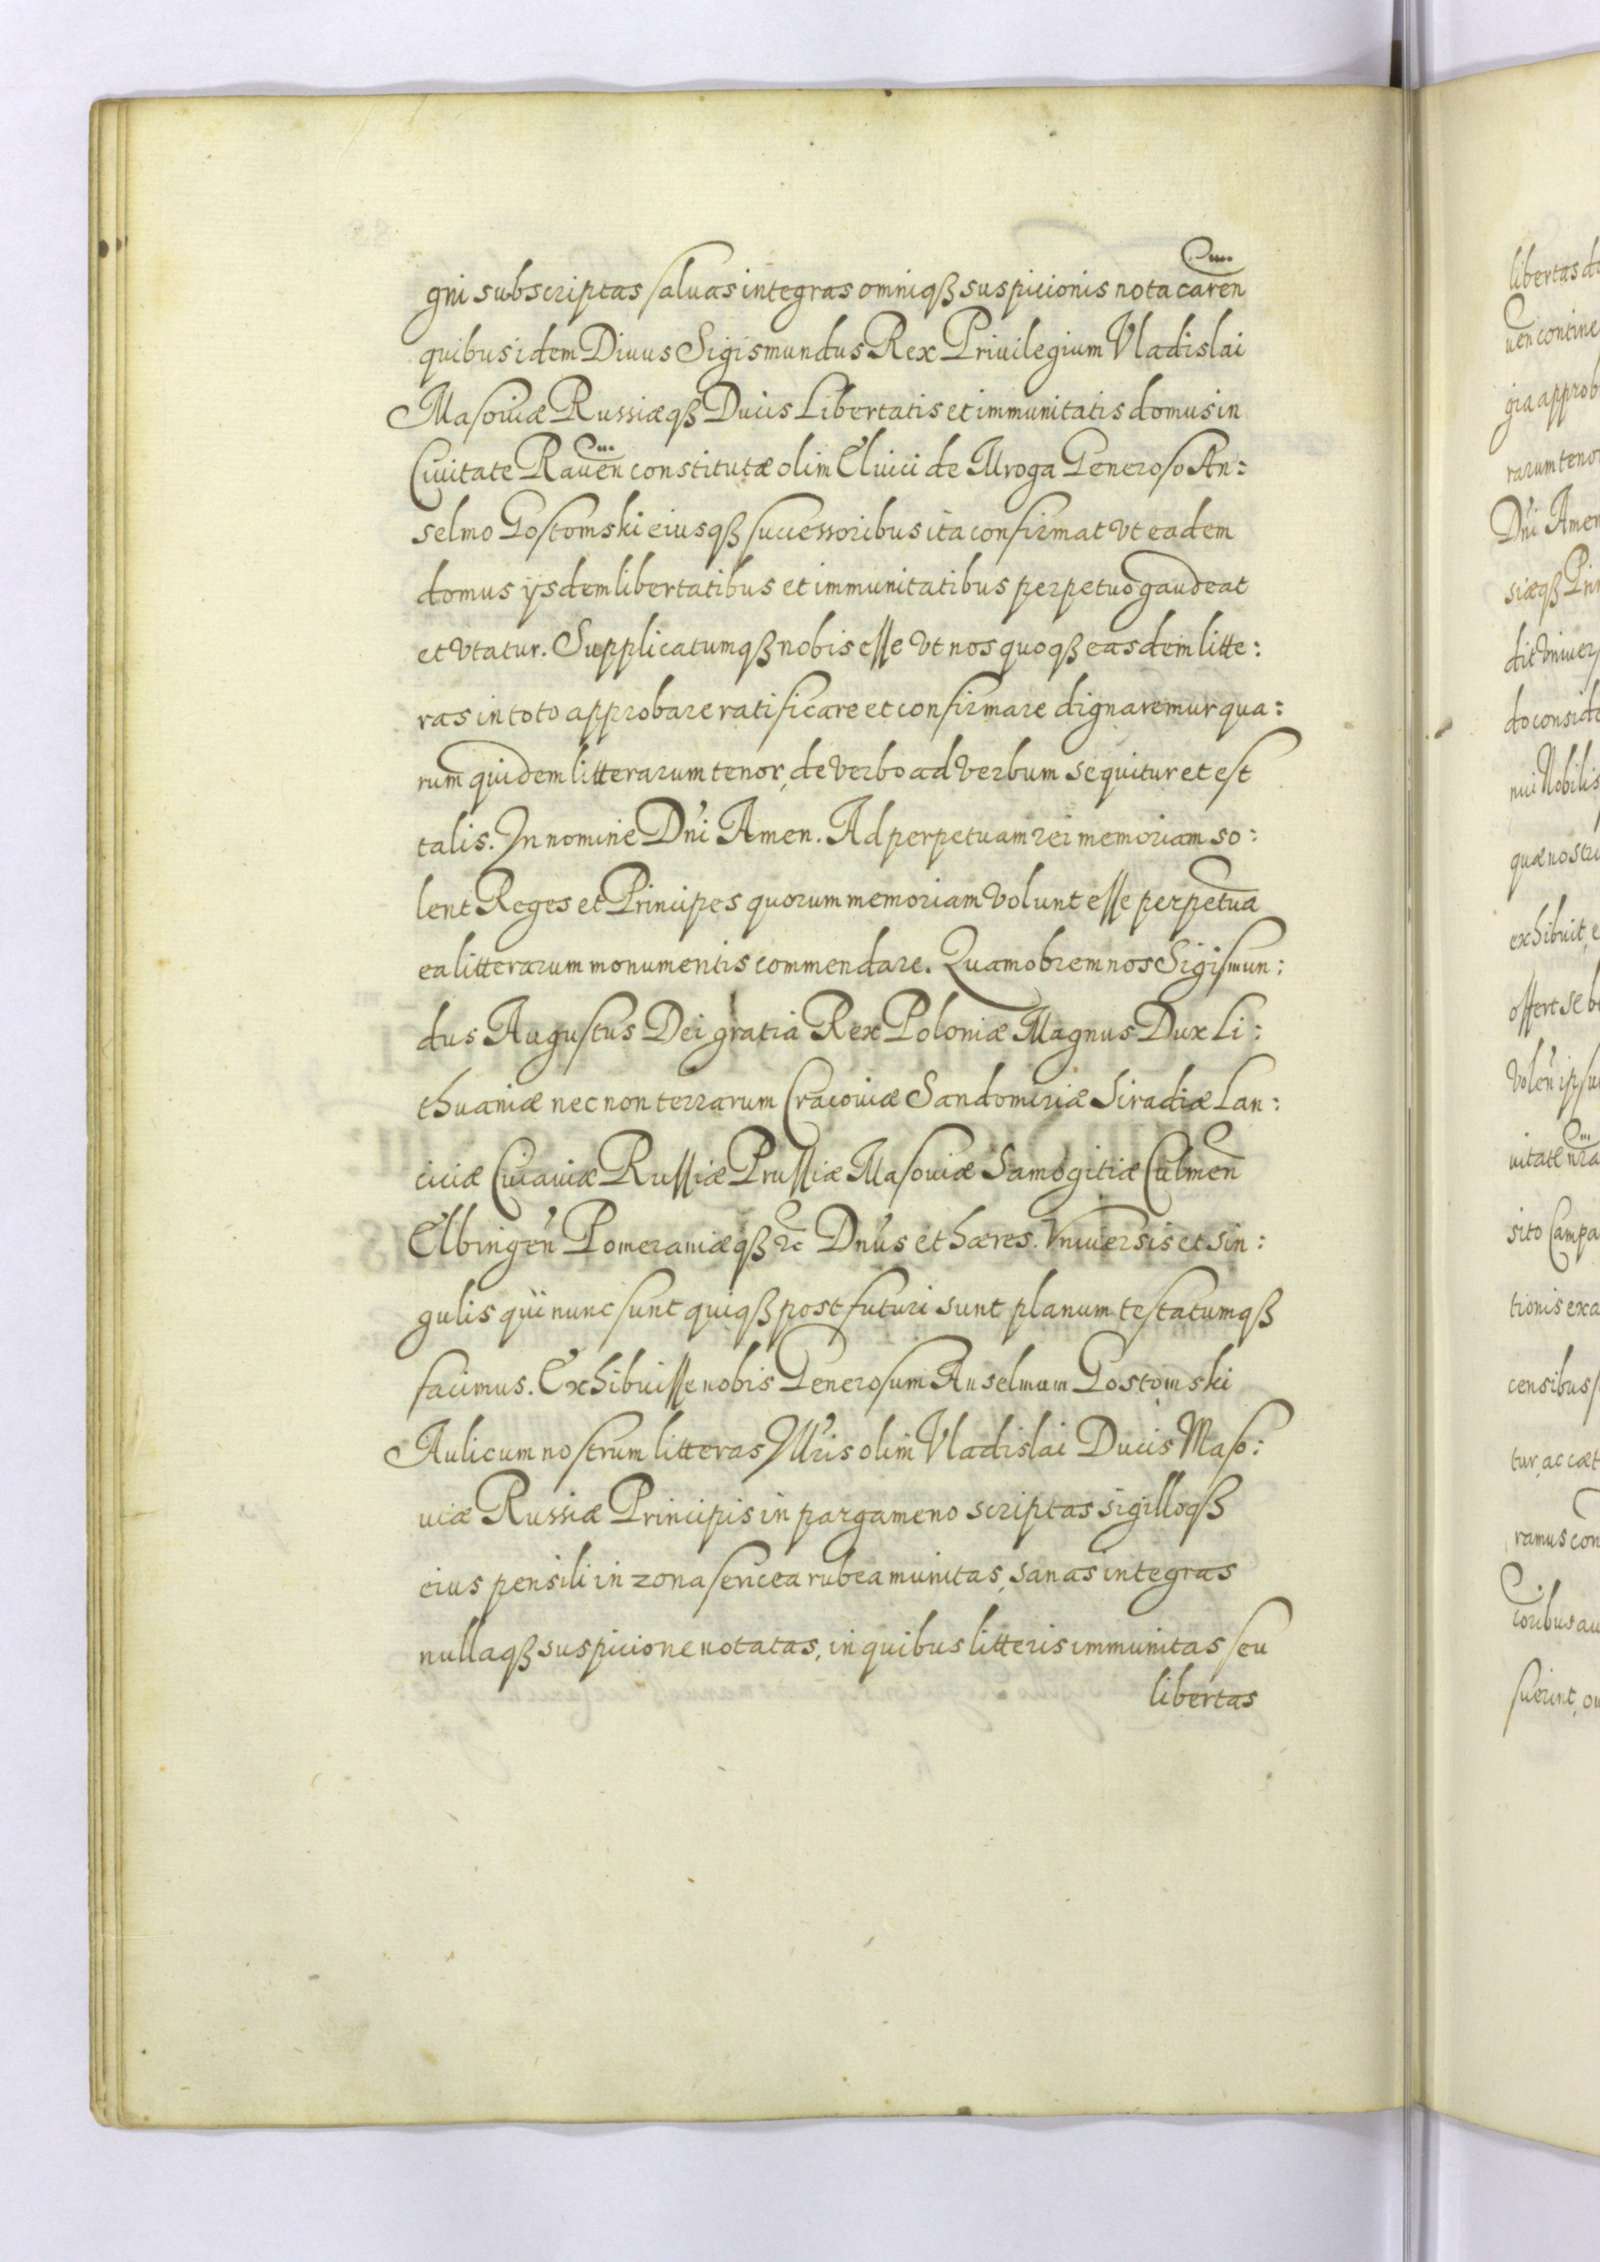 gni subscriptas saluas integras omniqß suspicionis nota caren̄
quibus idem Diuus Sigismundus Rex Priuilegium Vladislai
Masouiæ Russiæqß Ducis Libertatis et immunitatis domus in
Ciuitate Raueñ constitutæ olim Eluici de Mroga Generoso An:
selmo Gostomski eiusqß successoribus ita confirmat vt eadem
domus ysdem libertatibus et immunitatibus perpetuo gaudeat
et vtatur. Supplicatumqß nobis esse vt nos quoqß easdem litte:
ras in toto approbare ratificare et confirmare dignaremur qua:
rum quidem litterarum tenor, de verbo ad verbum sequitur et est
talis. In nomine Dñi Amen. Ad perpetuam rei memoriam so:
lent Reges et Principes quorum memoriam volunt esse perpetua
ea litterarum monumentis commendare. Quamobrem nos Sigismun:
dus Augustus Dei gratia Rex Poloniæ Magnus Dux Li:
thuaniæ nec non terrarum Cracouiæ Sandomiriæ Siradiæ Lan:
ciciæ Cuiauiæ Russiæ Prussiæ Masouiæ Samogitiæ Culmen̄
Elbingen̄ Pomeraniæqß &c Dñus et hæres. Vniuersis et sin:
gulis qui nunc sunt quiqß post futuri sunt planum testatumqß
facimus. Exhibuisse nobis Generosum Anselmum Gostomski
Aulicum nostrum litteras Illr̄is olim Vladislai Ducis Maso:
uiæ Russiæ Principis in pargameno scriptas sigilloqß
eius pensili in zona sericea rubea munitas, sanas integras
nullaqß suspicione notatas, in quibus litteris immunitas seu
libertas